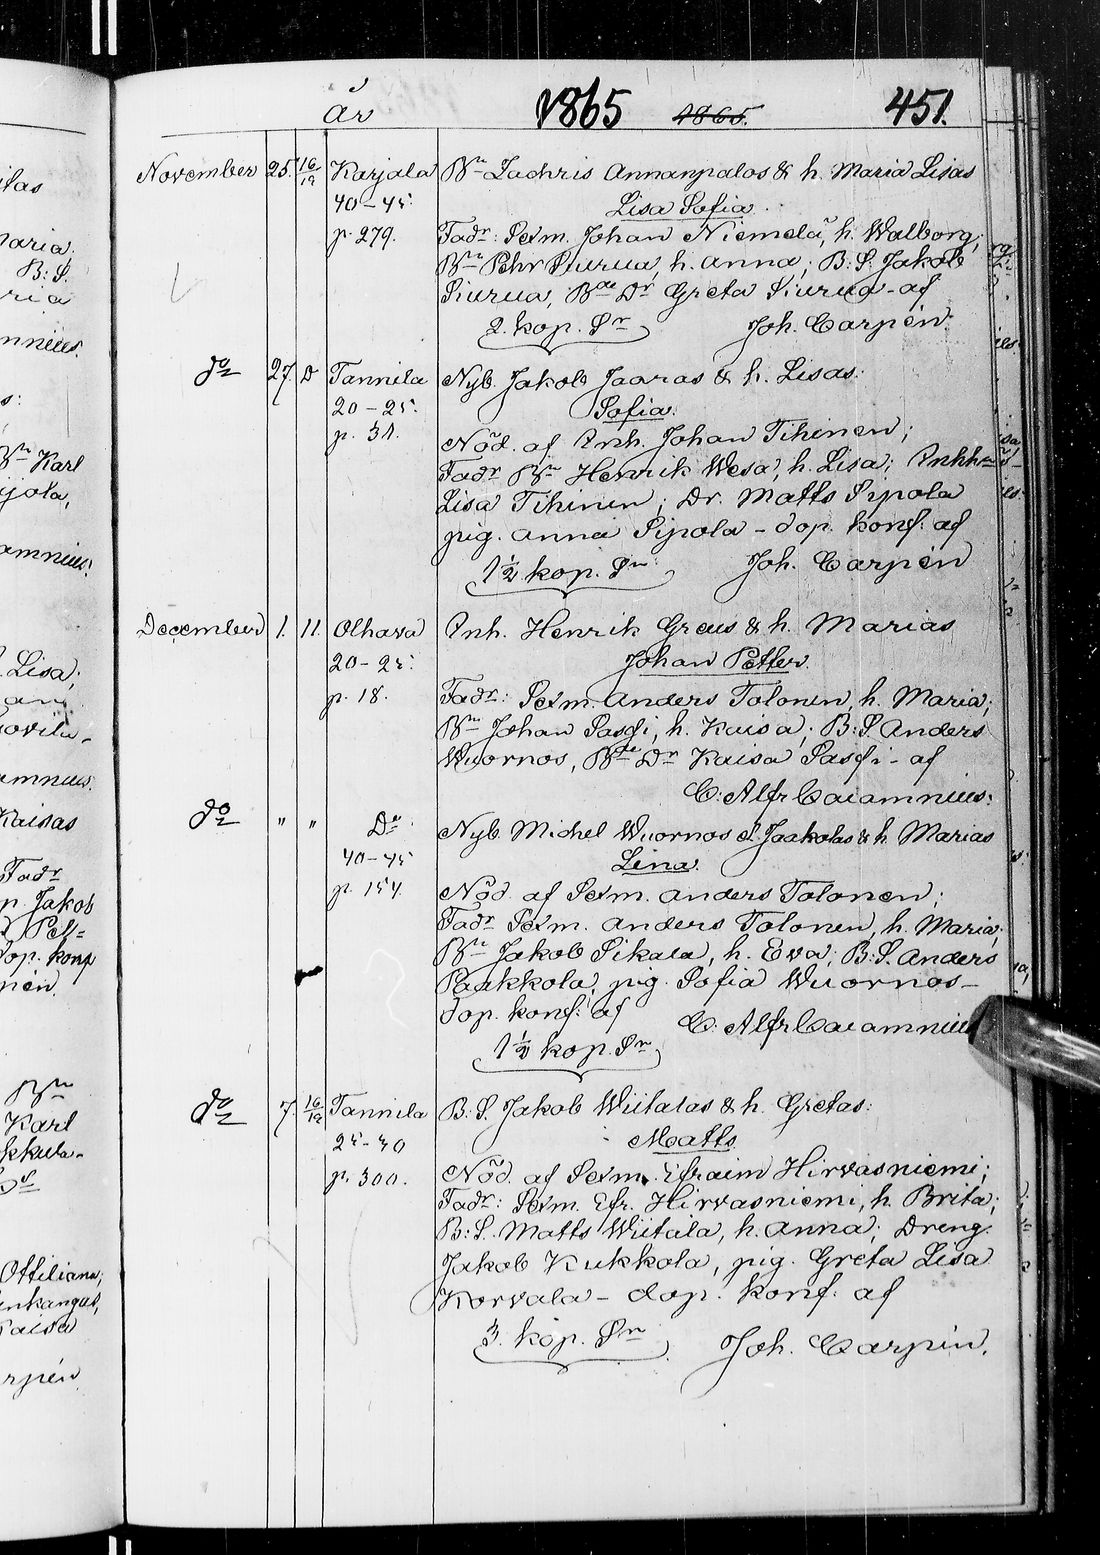 år 1865 1865. 451.
November 25. 16/12 Karjala Bn Zachris Annanpalos & h. Maria Lisas
40–45. Lisa Sofia
p. 279. Fadr: Sexm. Johan Niemelä, h. Walborg;
Bn Pehr Siurua, h. Anna; B.S. Jakob
Siurua, Bde Dr Greta Siurua – af
2. kop. Sr Joh. Carpén.
do 27. D Tannila Nyb. Jakob Jaaras & h. Lisas:
20–25. Sofia.
p. 31. Nöd. af Inh. Johan Tihinen;
Fadr Bn Henrik Wesa, h. Lisa; Inhh
Lisa Tihinen; Dr. Matts Sipola
pig. Anna Sipola – dop. konf. af
1½ kop. Sr Joh. Carpén
December 1. 11. Olhava Inh. Henrik Greus & h. Marias
20–25. Johan Petter.
p. 18. Fadr: Sexm. Anders Tolonen, h. Maria;
Bn Johan Sassi, h. Kaisa; B.S. Anders
Wuornos, Bde Dr Kaisa Sassi – af
C. Alfr Caiamnius.
do " " Do Nyb. Michel Wuornos l. Jaakolas & h. Marias
40–45 Lena.
p. 154. Nöd. af Sexm. Anders Tolonen;
Fadr Sexm. Anders Tolonen, h. Maria;
Bn Jakob Pikala, h. Eva; B.S. Anders
Paakkola, pig. Sofia Wuornos –
dop. konf. af C. Alfr Caiamnius
1½ kop. Sr
do 7. 16/12 Tannila B.S. Jakob Wiitalas & h. Gretas:
25–30 Matts
p. 300. Nöd. af Sexm. Efraim Hirvasniemi;
Fadr: Sexm. Efr. Hirvasniemi, h. Brita;
B.S. Matts Wiitala, h. Anna; Dreng.
Jakob Kukkola, pig. Greta Lisa
Korvala – dop. konf. af
3. kop. Sr Joh. Carpén.